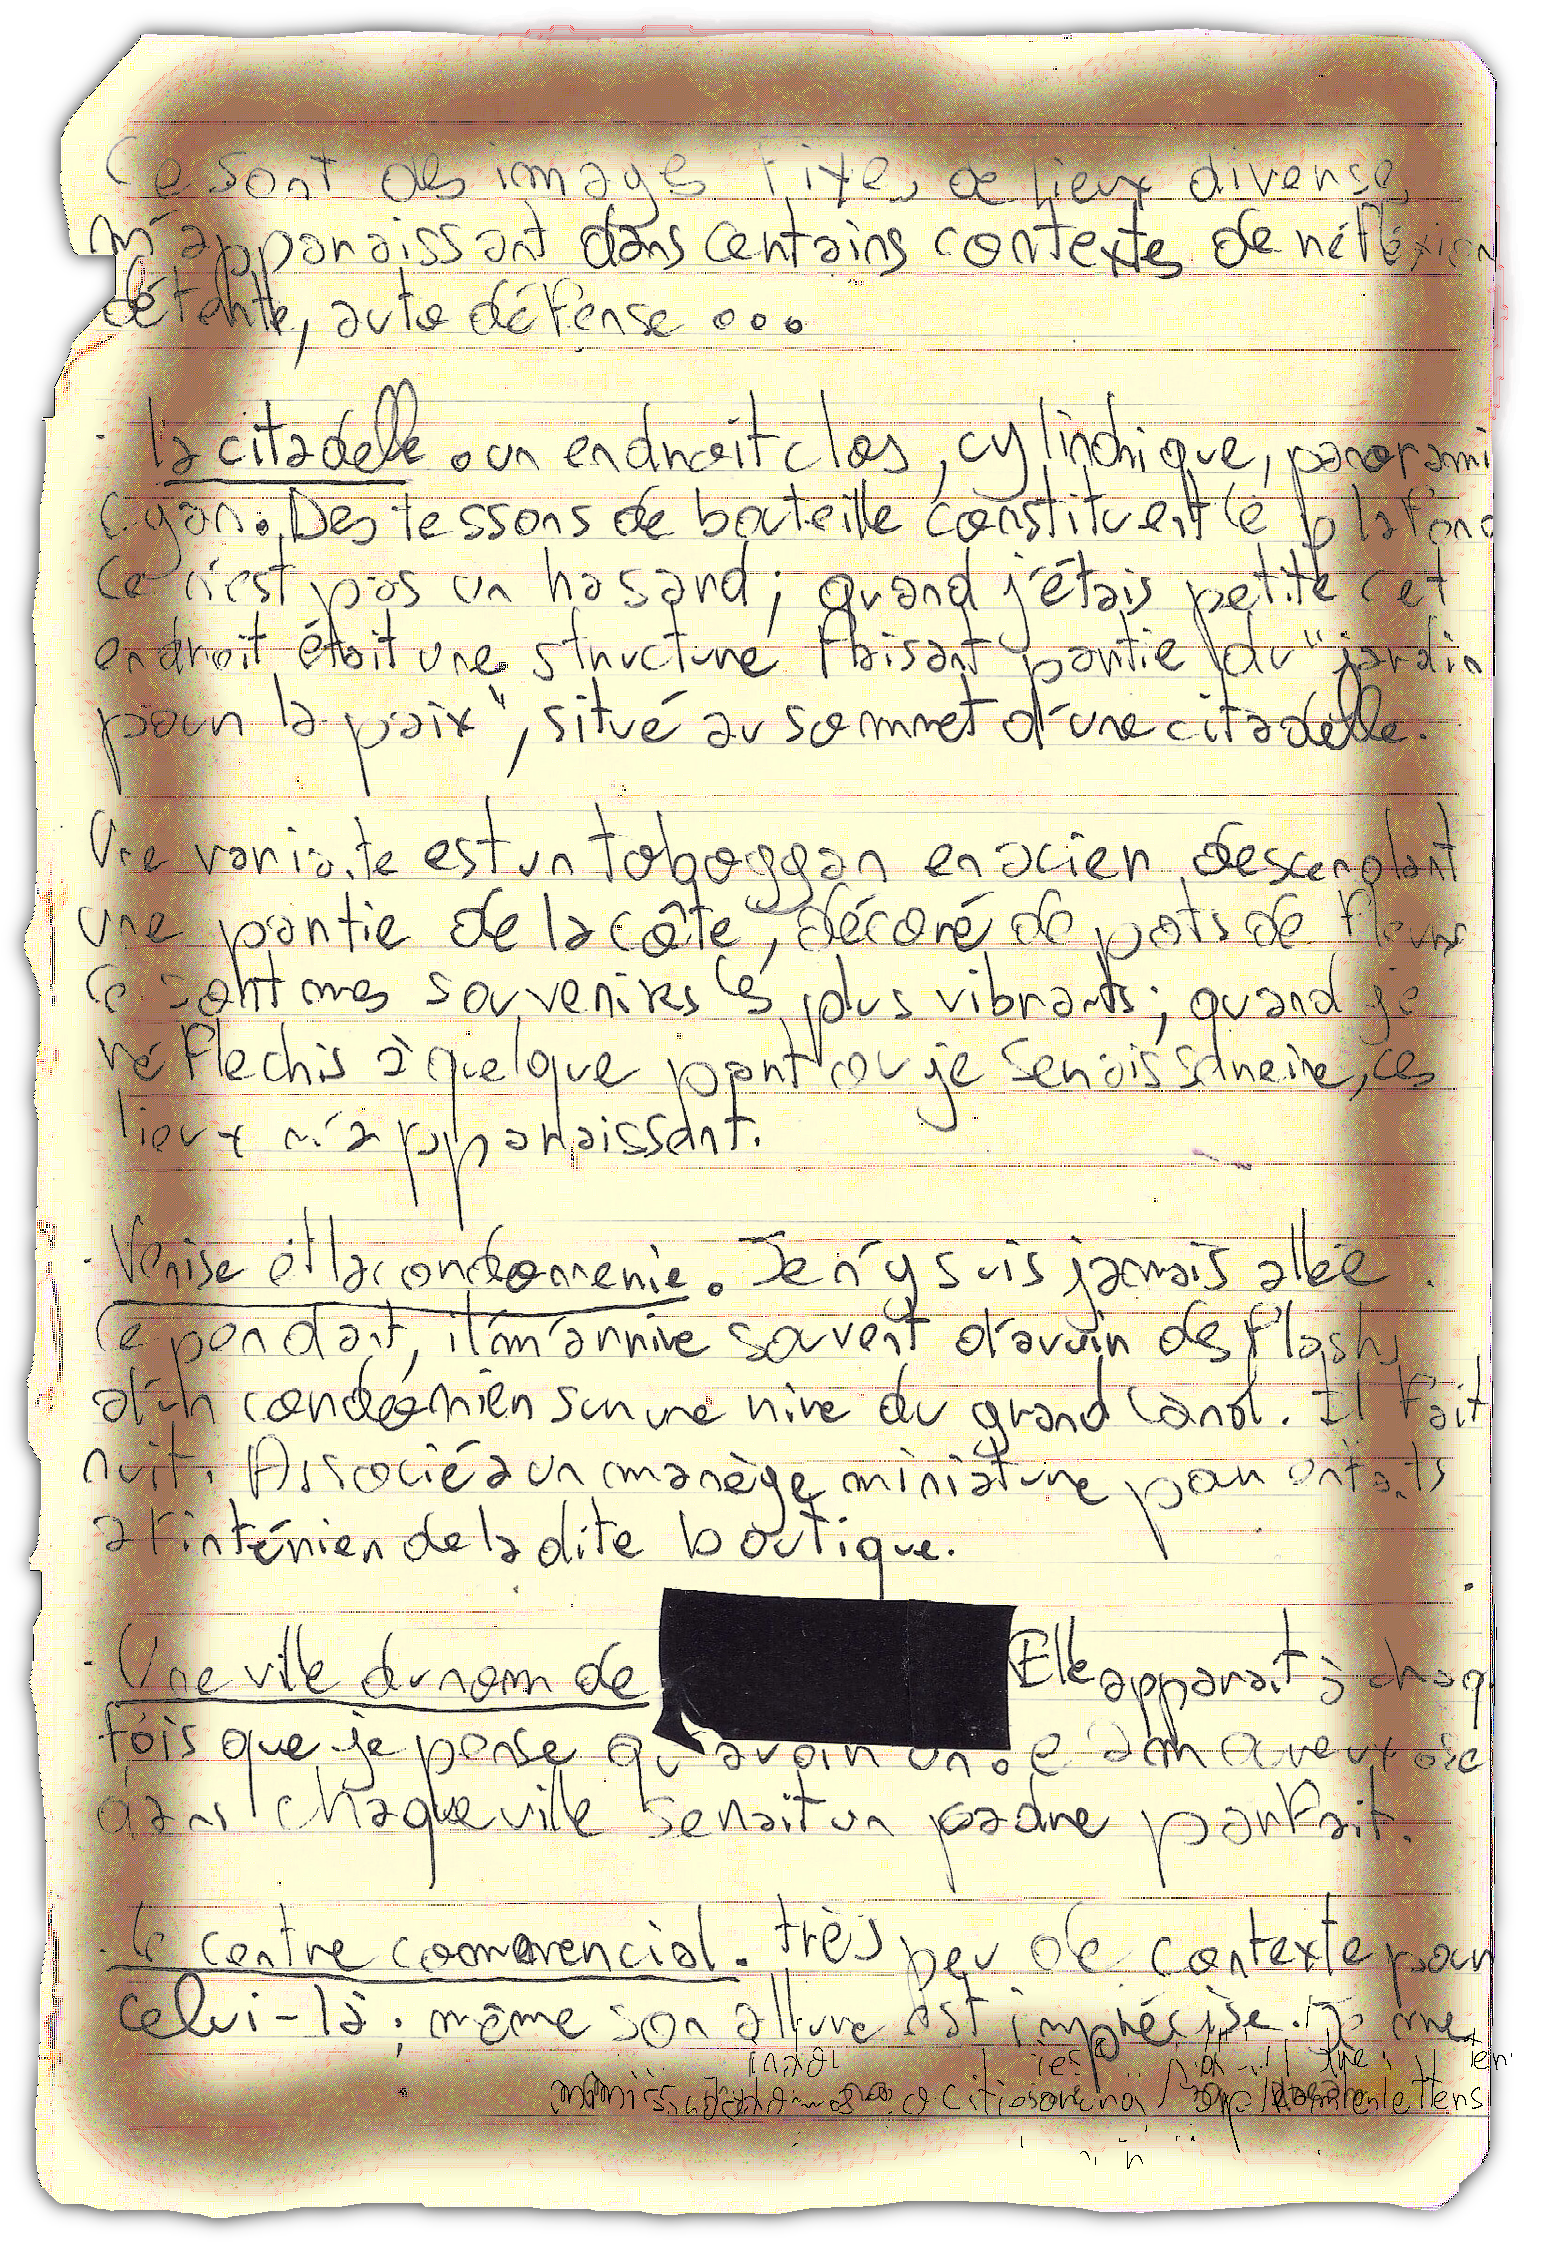 Ce sont des images fixes, de lieux diverses,
m'apparaissant dans certains contextes de réfléxion
détente, auto défense ...
· la citadelle. un endroit clos, cylindrique, panorami
Cyan. Des tessons de bouteille constituent le plafond
Ce n'est pas un hasard; quand j'étais petite cet
endroit était une structure faisant partie du "jardin
pour la paix", situé au sommet d'une citadelle.
Une variante est un toboggan en acier descendant
une partie de la côte, décoré de pots de fleurs
Ce sont mes souvenirs les plus vibrants; quand je
réflechis à quelque part où je serais sincère, ces
lieux m'apparaissent.
· Venise et la cordonnerie. Je n'y suis jamais allée.
Cependant, il m'arrive souvent d'avoir des flashs
d'un cordonnier sur une rive du grand canal. Il fait
nuit. Associé à un manège miniature pour enfants
à l'intérien de la dite boutique.
· Une ville du nom de Elle apparait à chaq
fois que je pense qu'avoir un.e amoureux.se
dans chaque ville serait un cadre parfait.
· le centre commercial. très peu de contexte pour
celui-là; même son allure est imprécise. Je me